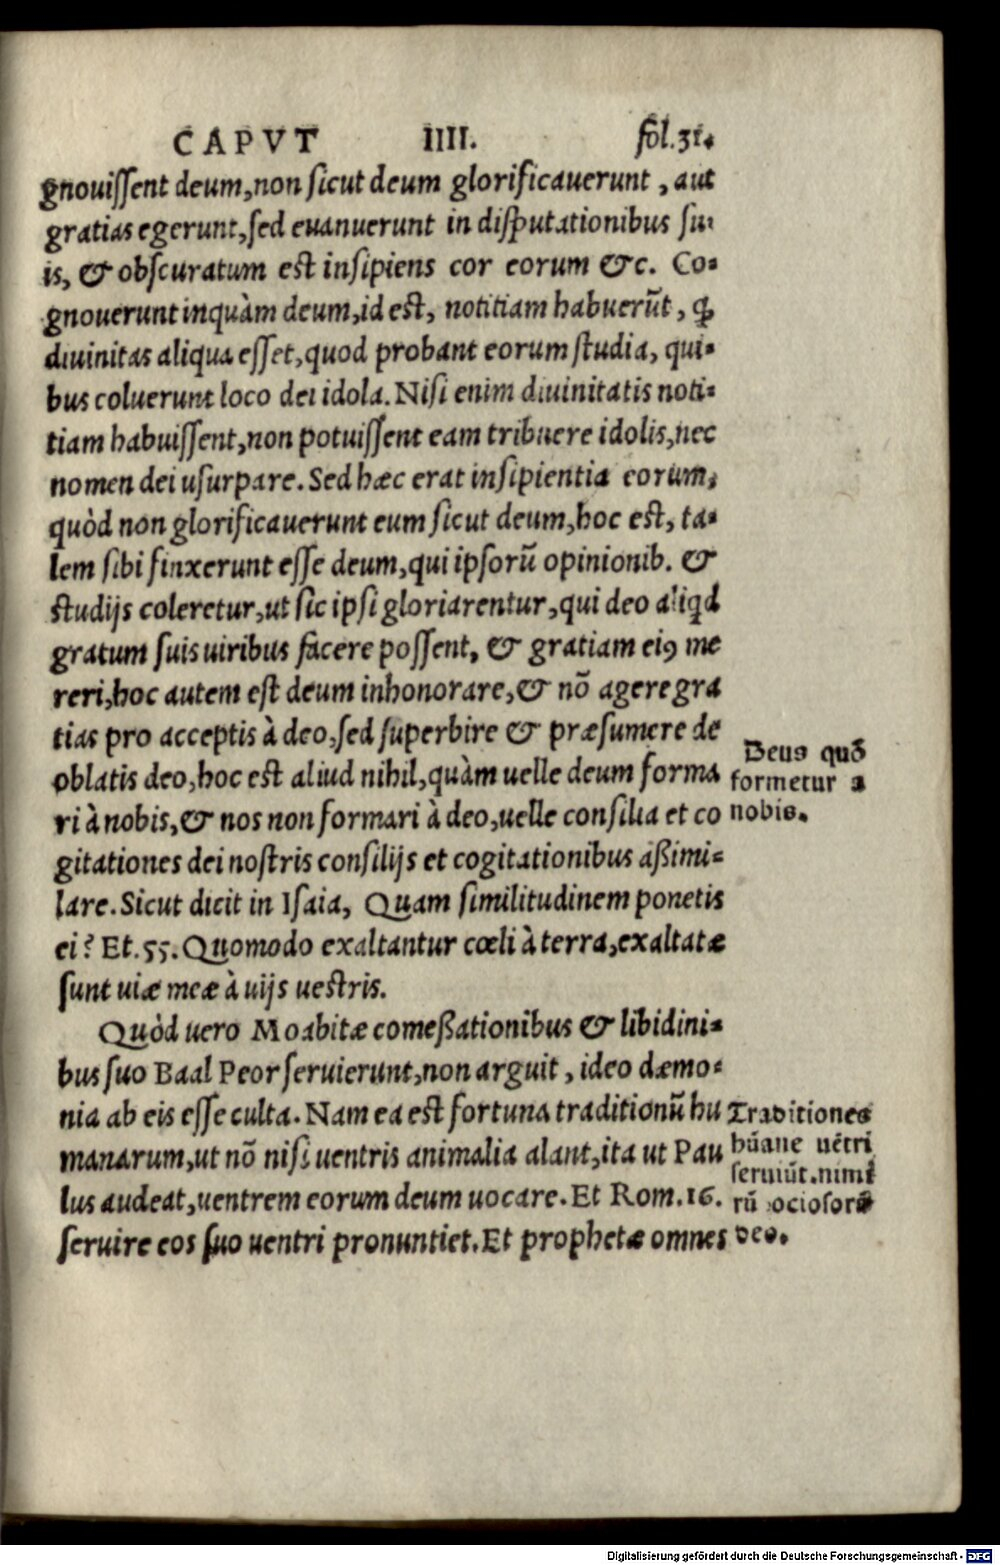 CAPVT IIII. fol.31.
gnouiſſent deum,non ſicut deum glorificauerunt, aut
gratias egerunt,ſed euanuerunt in diſputationibus ſu-
is, & obſcuratum eſt inſipiens cor eorum &c. Co-
gnouerunt inquàm deum,id eſt, notitiam habuerūt, ꝙ
diuinitas aliqua eſſet,quod probant eorum ſtudia, qui-
bus coluerunt loco dei idola. Niſi enim diuinitatis noti-
tiam habuiſſent,non potuiſſent eam tribuere idolis,nec
nomen dei uſurpare. Sed hæc erat inſipientia eorum,
quòd non glorificauerunt eum ſicut deum,hoc eſt, ta-
lem ſibi finxerunt eſſe deum,qui ipſorū opinionib. &
ſtudijs coleretur,ut ſic ipſi gloriarentur,qui deo aliqd
gratum ſuis uiribus facere poſſent, & gratiam eiꝰ me
reri,hoc autem eſt deum inhonorare,& nō agere gra
tias pro acceptis à deo,ſed ſuperbire & præſumere de
oblatis deo,hoc eſt aliud nihil,quàm uelle deum forma
ri à nobis,& nos non formari à deo,uelle conſilia et co
gitationes dei noſtris conſilijs et cogitationibus aßimi-
lare. Sicut dicit in Iſaia, Quam ſimilitudinem ponetis
ei? Et.55. Quomodo exaltantur cœli à terra,exaltatæ
ſunt uiæ meæ à uijs ueſtris.
Deus quō
formetur a
nobis.
Quòd uero Moabitæ comeßationibus & libidini-
bus ſuo Baal Peor ſeruierunt,non arguit, ideo dæmo-
nia ab eis eſſe culta. Nam ea eſt fortuna traditionū hu
manarum,ut nō niſi uentris animalia alant,ita ut Pau
lus audeat,uentrem eorum deum uocare. Et Rom.16.
ſeruire eos ſuo uentri pronuntiet. Et prophetæ omnes
Traditiones
hūane uētri
ſeruiūt.nimi
rū ocioſorū
deo.
Digitalisierung gefördert durch die Deutsche Forschungsgemeinschaft - DFG